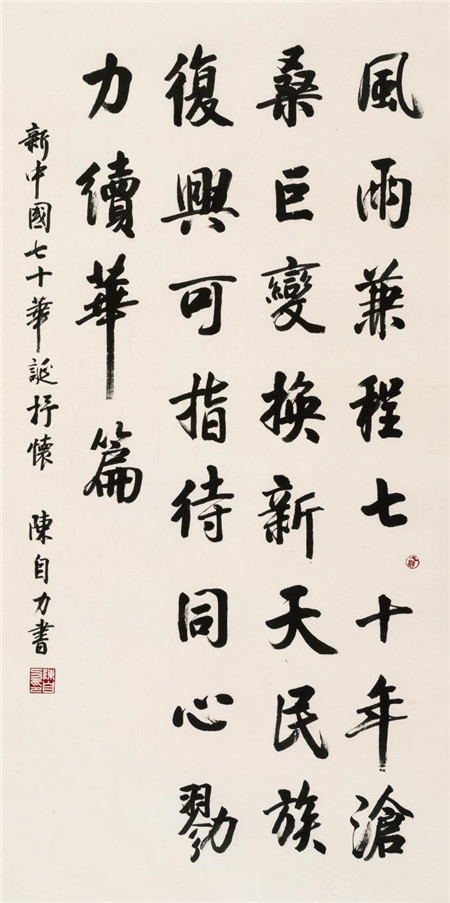 風雨兼程七十年滄
桑巨變換新天民族
復興可指待同心勠
力續華篇
新中國七十華誕抒懷 陳自力書